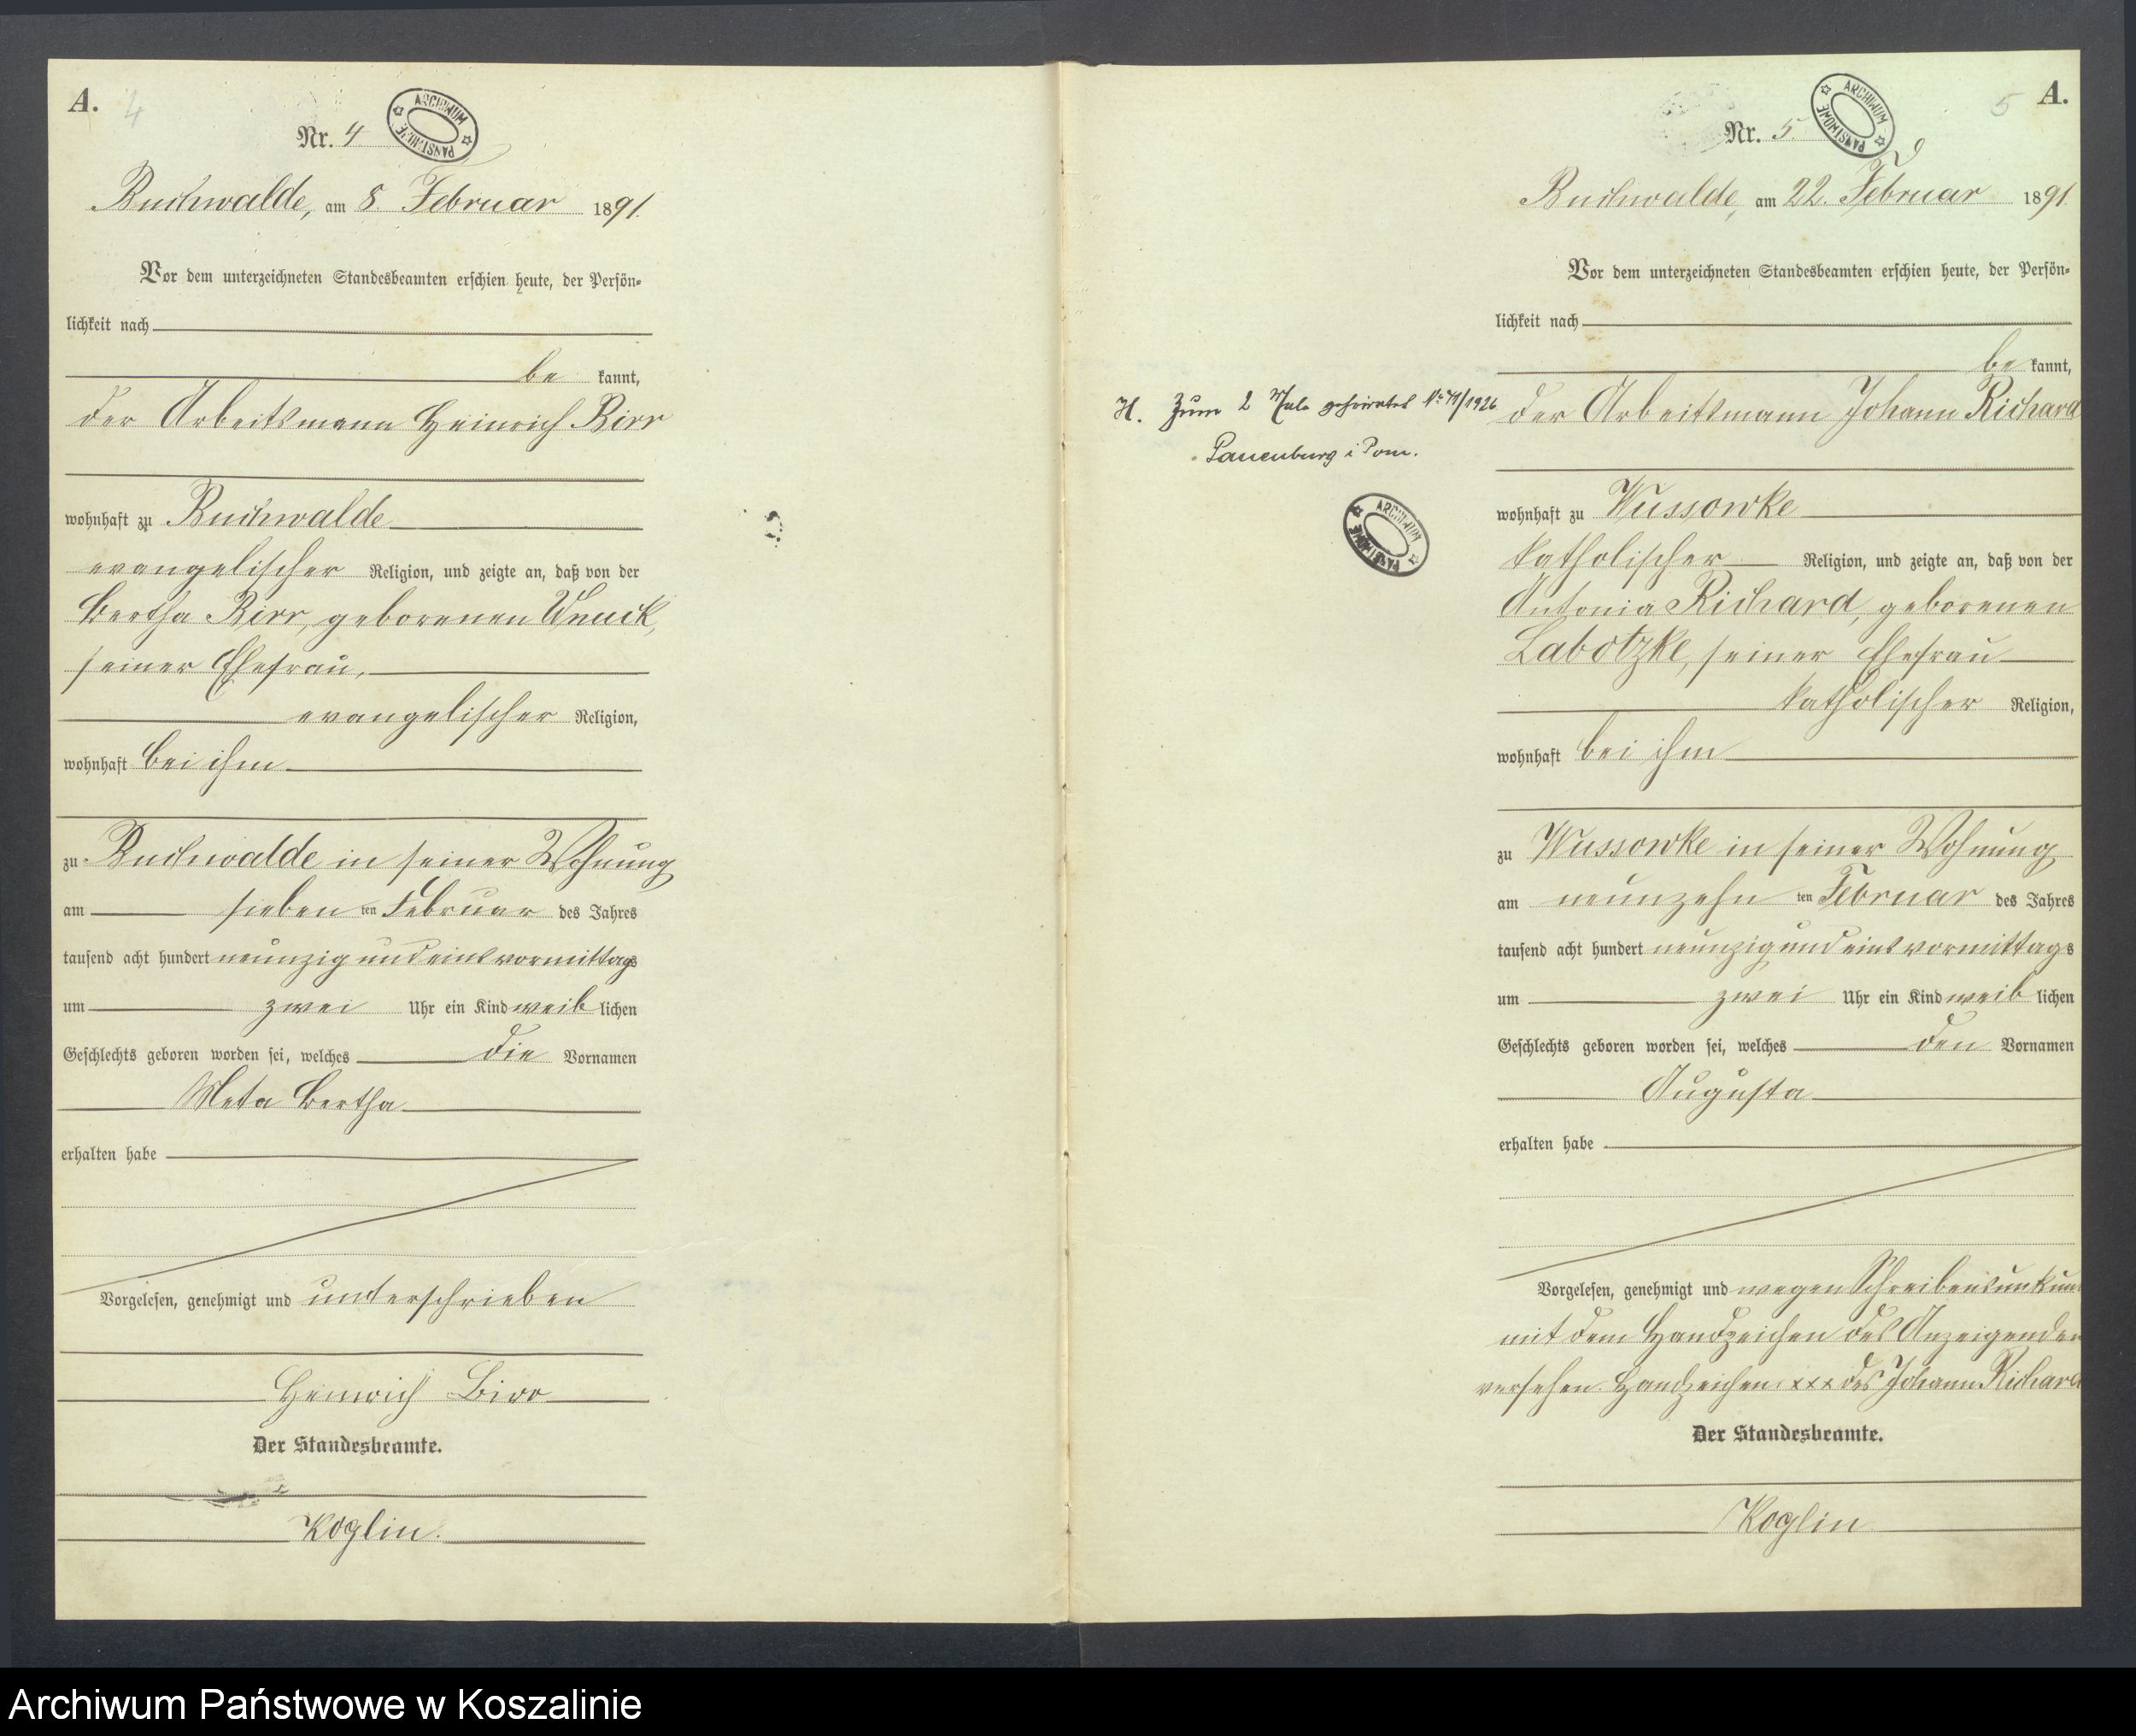 A.
4
Nr. 4
ARCHIWUM PAŃSTWOWE
Buchwalde, am 8. Februar 1891.
Vor dem unterzeichneten Standesbeamten erschien heute, der Persön-
lichkeit nach
be kannt,
der Arbeitsmann Heinrich Birr
wohnhaft zu Buchwalde
evangelischer Religion, und zeigte an, daß von der
Bertha Birr, geborenen
seiner Ehefrau,
evangelischer Religion,
wohnhaft bei ihm
zu Buchwalde in seiner Wohnung
am sieben ten Februar des Jahres
tausend acht hundert neunzig und eins vormittags
um zwei Uhr ein Kind weib lichen
Geschlechts geboren worden sei, welches die Vornamen
Meta Bertha
erhalten habe
Vorgelesen, genehmigt und unterschrieben
Heinrich Birr
Der Standesbeamte.
Koglin.
A.
5
Nr. 5.
ARCHIWUM PAŃSTWOWE
Buchwalde, am 22. Februar 1891
Vor dem unterzeichneten Standesbeamten erschien heute, der Persön-
lichkeit nach
be kannt,
der Arbeitsmann Johann Richard
H. Zum 2 Male geheiratet No 71/1926
Lauenburg i Pom.
ARCHIWUM PAŃSTWOWE
wohnhaft zu Wussowke
katholischer Religion, und zeigte an, daß von der
Antonia Richard, geborenen
Labotzke, seiner Ehefrau
katholischer Religion,
wohnhaft bei ihm
zu Wussowke in seiner Wohnung
am neunzehn ten Februar des Jahres
tausend acht hundert neunzig und eins vormittags
um zwei Uhr ein Kind weib lichen
Geschlechts geboren worden sei, welches den Vornamen
Augusta
erhalten habe
Vorgelesen, genehmigt und wegen Schreibensunkun
mit dem Handzeichen des Anzeigenden
versehen. Handzeichen xxx des Johann Richard
Der Standesbeamte.
Koglin
Archiwum Państwowe w Koszalinie